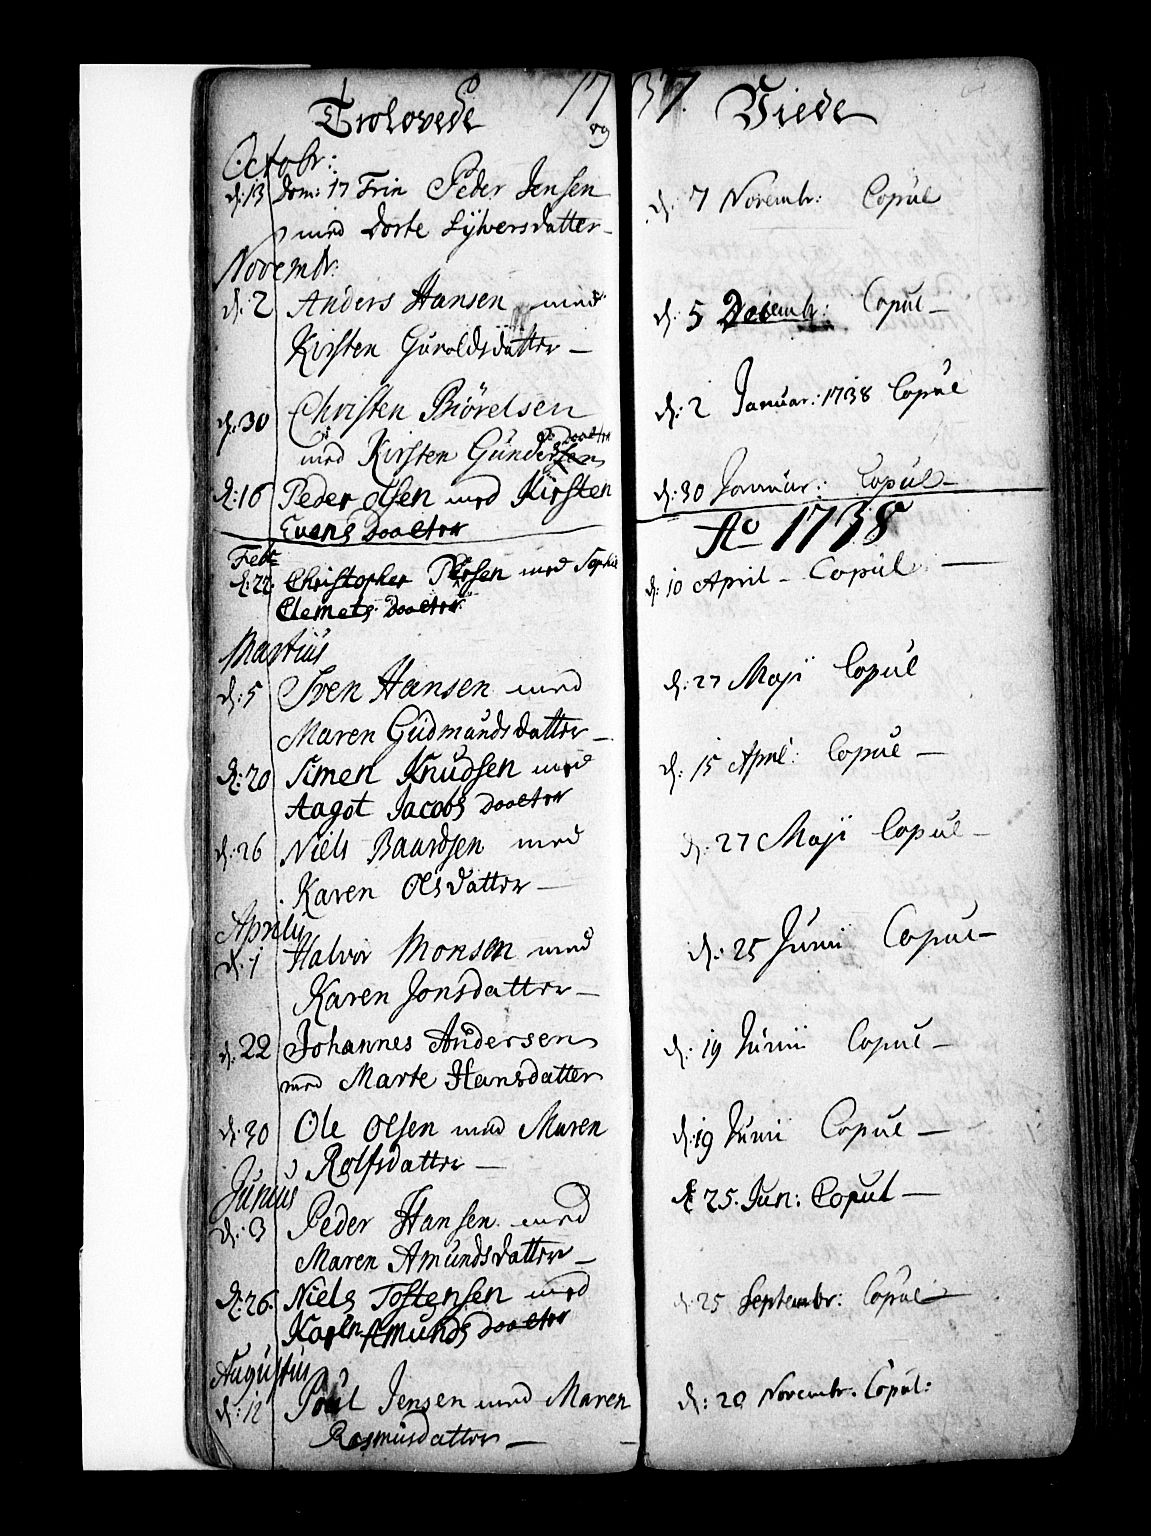 1737
Trolovede og Viede
Octobr:
d: 13 Dom: 17 Trin Peder Jensen d: 7 Novembr: Copul
med Dorte Sylversdatter
Novembr:
d: 2 Anders Hansen med d: 5 Decembr: Copul
Kirsten Guroldsdatter
d: 30 Christen Biörelsen d: 2 Januar: 1738 Copul
med Kirsten Gunders Daatter
d: 16 Peder Olsen med Kirsten d: 30 Januar: Copul
Evens Daatter
Ao 1738
Febr
d: 22 Christopher Persen med Sophie d: 10 April Copul
Clemets Daatter
Martius
d: 5 Sven Hansen med d: 27 Maji Copul
Maren Gudmundsdatter
d: 20 Simen Knudsen med d: 15 April: Copul
Aagot Jacobs Daatter
d: 26 Niels Baardsen med d: 27 Maji Copul
Karen Olsdatter
Aprilij
d: 7 Halvor Monsen med d: 25 Junii Copul
Karen Jonsdatter
d: 22 Johannes Andersen d: 19 Junii Copul
med Marte Hansdatter
d: 30 Ole Olsen med Maren d: 19 Junii Copul
Rolfsdatter
Junius
d: 3 Peder Hansen med d: 25. Jun: Copul
Maren Amundsdatter
d: 26 Niels Tostensen med d: 25 Septembr: Copul
Karen Amunds Daatter
Augustus
d: 12 Poul Jensen med Maren d: 20 Novembr. Copul:
Rasmusdatter